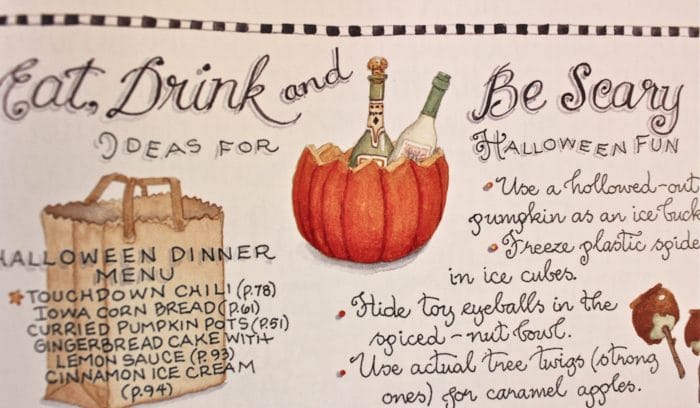 Eat, Drink and Be Scary
Ideas for Halloween Fun
Halloween Dinner
Menu
Touchdown Chili (p.78)
Iowa Corn Bread (p.61)
Curried Pumpkin Pots (p.51)
Gingerbread Cake with
Lemon Sauce (p.93)
Cinnamon Ice Cream
(p.94)
Use a hollowed-out
pumpkin as an ice
Freeze plastic
in ice cubes.
Hide toy eyeballs in the
spiced-nut bowl.
Use actual tree twigs (strong
ones) for caramel apples.